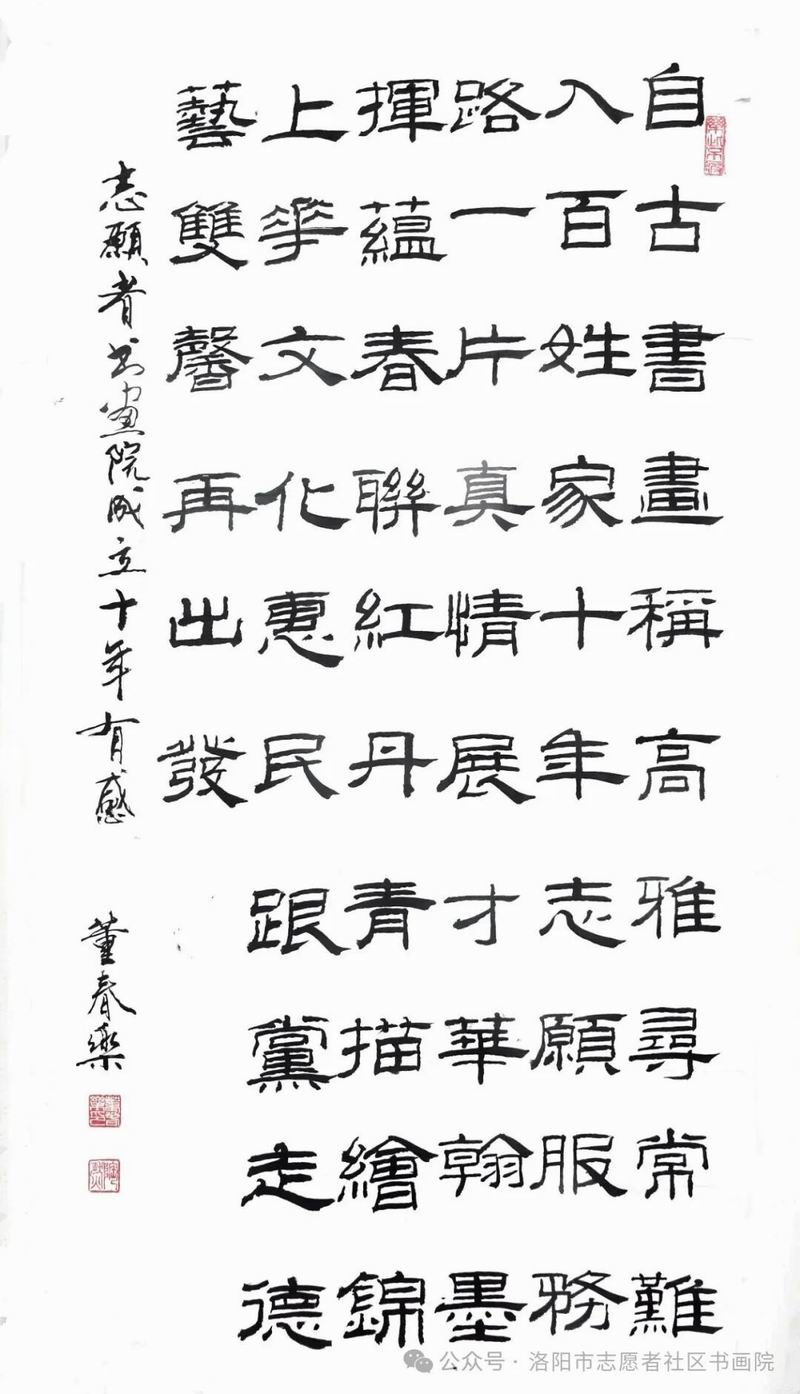 自古書畫稱高雅尋常難
入百姓家十年志願服務
路一片真情展才華翰墨
揮蘊春聯紅丹青描繪錦
上花文化惠民跟黨走德
藝雙馨再出發
志願者书畫院成立十年有感 董春樂
公众号·洛阳市志愿者社区书画院